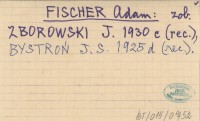 FISCHER Adam: zob.
ZBOROWSKI J. 1930 c (rec.),
BYSTROŃ J. S. 1925 d (rec.).